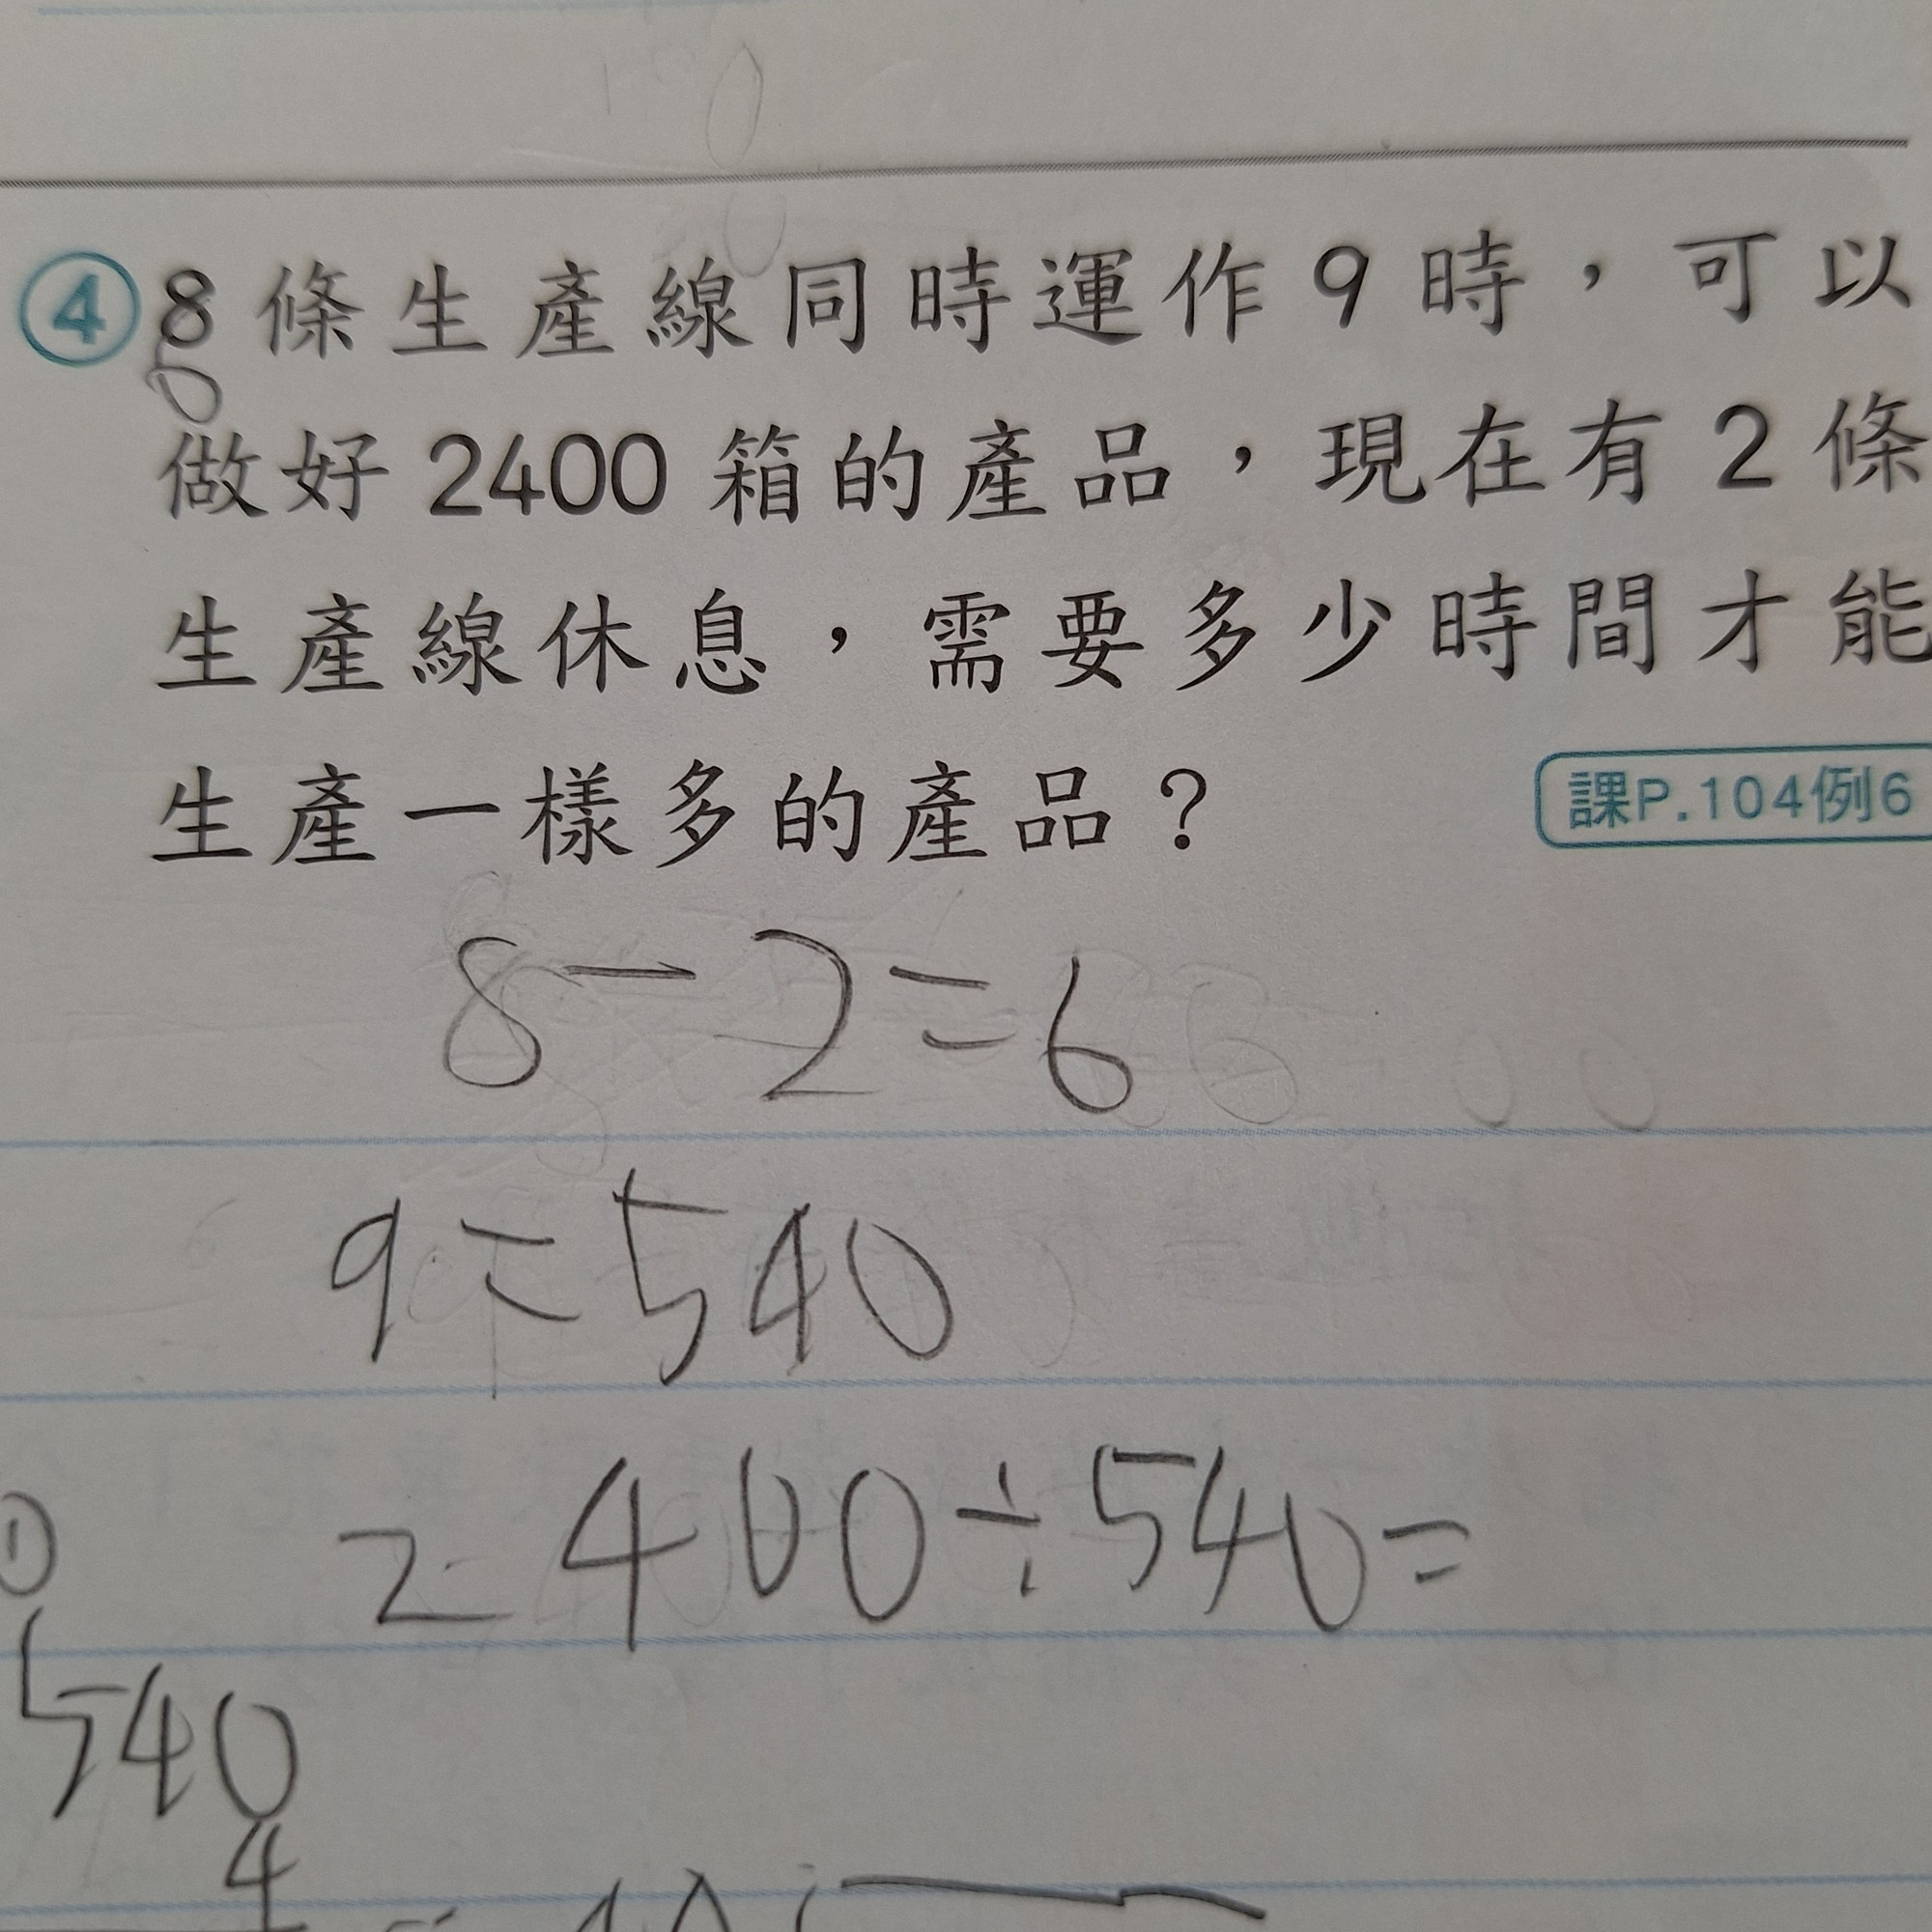 ④8條生產線同時運作9時，可以
做好2400箱的產品，現在有2條
生產線休息，需要多少時間才能
生產一樣多的產品？
課P.104例6
8-2=6
9=540
2400÷540=
540
4